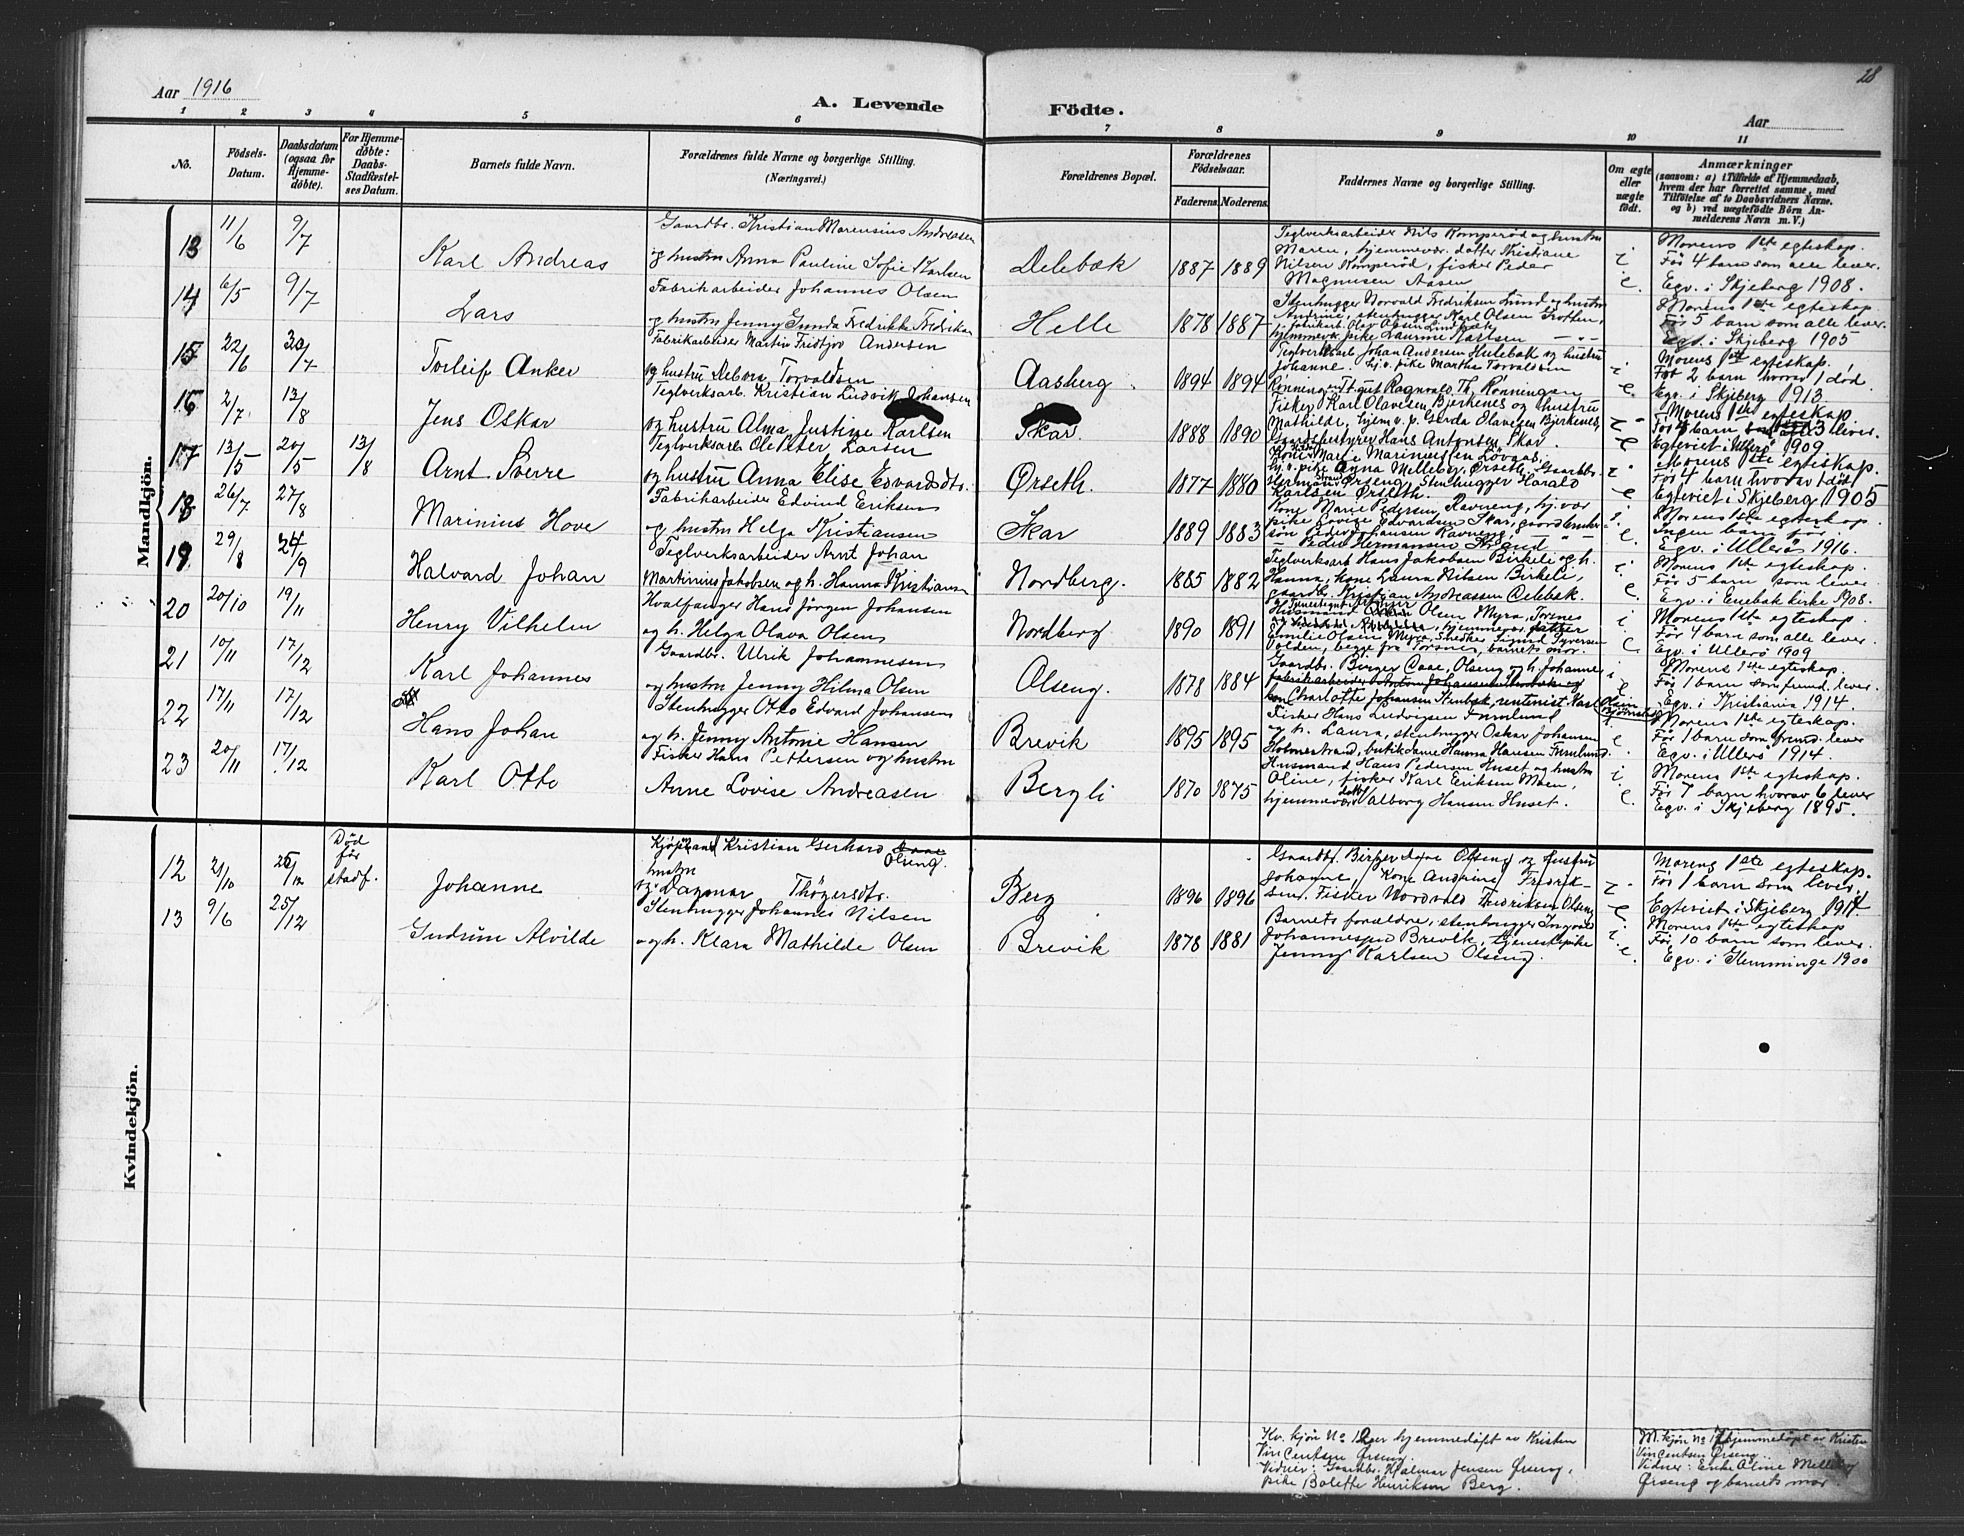 28
Aar 1916
A. Levende
Födte.
Aar
1 2 3 4 5 6 7 8 9 10 11
No.
Födsels-
Datum.
Daabsdatum
(ogsaa for
Hjemme-
døbte).
For Hjemme-
døbte:
Daabs-
Stadfæstel-
ses Datum.
Barnets fulde Navn.
Forældrenes fulde Navne og borgerlige Stilling.
(Næringsvei.)
Forældrenes Bopæl.
Forældrenes
Födselsaar.
Faderens.
Moderens.
Faddernes Navne og borgerlige Stilling.
Om ægte
eller
uægte
født.
Anmærkninger
(saasom: a) i Tilfælde af Hjemmedaab,
hvem der har forrettet samme, med
Tilföielse af to Daabsvidners Navne.
og b) ved uægtefödte Börn An-
melderens Navn m. V.)
Mandkjön.
13 11/6 9/7
Karl Andreas
Gaardbr. Kristian Marensius Andreasen
og hustru Anna Pauline Sofie Karlsen
Delebæk
1887 1889
Teglverksarbeider Nils Komperød og hustru
Maren, hjemmevær. datter Kristiane
Nilsen Komperød, fisker Peder
Magnusen Aasen,
i e.
Morens 1ste egteskap.
Før 4 barn som alle lever.
Egv. i Skjeberg 1908.
14 6/5 9/7
Lars
Fabrikarbeider Johannes Olsen
og hustru Jenny Gunda Fredrikke Fredriksen
Helle
1878 1887
Stenhugger Norvald Fredriksen Lund og hustru
Andrine, stenhugger Karl Olsen Grotten,
hjemmev. pike Laurine Karlsen
Morens 1ste egteskap
Før 5 barn som alle lever.
Egv. i Skjeberg 1905
15 22/6 30/7
Torleif Anker
Fabrikarbeider Martin Fridtjov Andersen
og hustru Debora Torvaldsen
Aasberg.
1894 1894
Teglverksarb. Johan Andersen Hulebæk og hustru
Johanne. hj.v. pike Martha Torvaldsen
Rønningen, Ragnvald Th. Rønningen
i e.
Morens 1ste egteskap.
Før 2 barn hvorav 1 død.
Egv. i Skjeberg 1913.
16 2/7 13/8
Jens Oskar
Teglverksarb. Kristian Ludvik Johansen
og hustru Alma Justine Karlsen
Skar.
1888 1890
Fisker Karl Olavesen Bjerkenes og hustru
Mathilde, hjem.v. p. Gerda Olavesen Bjerkenes,
Gaardsbestyrer Hans Antonsen Skar.
Morens 1ste egteskap
Før barn 3 lever.
Egteviet i Ullerø 1909
17 13/5 20/5 13/8
Arnt Sverre
Teglverksarb. Ole Peter Larsen
og hustru Anna Elise Edvardsdtr.
Ørseth.
1877 1880
Kone Marie Marinusen Løvaas,
hj.v. pike Anna Melleby, Ørseth, Gaardbr.
Herman Ørseng, Stenhugger Harald
Karlsen Ørseth.
i e
Morens 1ste egteskap.
Før 4 barn hvorav 1 død
Egteviet i Skjeberg 1905
18 26/7 27/8
Marinius Hove
Fabrikarbeider Edvind Eriksen
og hustru Helga Kristiansen
Skar
1889 1883
Kone Marie Pedersen Ravneng, hj.vær
pike Lovise Edvardsen Skar, gaardbruker-
søn Peder Hansen Ravneng,
Peder Hermansen Strand
i. e.
Morens 1ste egteskap.
Ingen barn før.
Egv. i Ullerø 1916.
19 29/8 24/9
Halvard Johan
Teglverksarbeider Arnt Johan
Martinius Jakobsen og h. Hanna Kristians
Nordberg.
1885 1882
Teglverksarb Hans Jakobsen Birkele og h.
Hanna, kone Laura Nilsen Birkele,
gaardb. Kristian Andreassen Delebæk.
i. e.
Morens 1ste egteskap.
Før 5 barn som lever
Egv. i Enebak kirke 1908.
20 20/10 19/11
Henry Vilhelm
Hvalfanger Hans Jörgen Johansen
og h. Helga Olava Olsen
Nordberg
1890 1891
Husmand Olsen Myra, Torsnes
Emilie Olsen Myra, Snedker Sigurd Syversen
Volden, begge fra Torsnes, barnets mor.
i e
Morens 1ste egteskap.
Før 4 barn som alle lever.
Egv. i Ullerö 1909
21 10/11 17/12
Karl Johannes
Gaardbr. Ulrik Johannesen
og hustru Jenny Hilma Olsen
Olseng.
1878 1884
Gaardbr. Birger Daae, Olseng og h. Johanne
Charlotte Johansen Stenbæk, rentenist Karl
i e
Morens 1ste egteskap.
Før 1 barn som fremd. lever.
Egv. i Kristiania 1914.
22 17/11 17/12
Hans Johan
Stenhugger Otto Edvard Johansen
og h. Jenny Antonie Hansen
Brevik
1895 1895
Fisker Hans Ludvigsen Furulund
og h. Laura, stenhugger Oskar Johansen
Holmestrand, butikdame Hanna Hansen Furulund.
i e
Morens 1ste egteskap.
Før 1 barn som fremd. lever
Egv. i Ullerø 1914.
23 20/11 17/12
Karl Otto
Fisker Hans Pettersen og hustru
Anne Lovise Andreasen
Bergli
1870 1875
Husmand Hans Pedersen Huset og hustru
Oline, fisker Karl Eriksen Moen,
hjemmevær. datt. Valborg Hansen Huset.
i. e.
Morens 1ste egteskap.
Før 7 barn hvorav 6 lever
Egv. i Skjeberg 1895.
Kvindekjön.
12 21/10 25/12
Død
før
stadf.
Johanne
Kjøpmand Kristian Gerhard Daae
Olseng.
hustru
og Dagmar Thögersdtr.
Berg
1896 1896
Gaardbr. Birger Daae Olseng og hustru
Johanne, Kone Andrine Fredrik-
sen. Fisker Nordvald Fredriksen Olseng
i e
Morens 1ste egteskap.
Før 1 barn som lever.
Egteviet i Skjeberg 1914.
13 9/6 25/12
Gudrun Alvilde
Stenhugger Johannes Nilsen
og h. Klara Mathilde Olsen
Brevik
1878 1881
Barnets forældre, stenhugger Ingvald
Johannesen Brevik, tjenestepike
Jenny Karlsen Olseng.
i. e.
Morens 1ste egteskap
Før 10 barn som lever.
Egv. i Glemminge 1900
Kv. kjön No 12 er hjemmedøpt av Kristen
Vincentsen Ørseng.
Vidner: Gaardbr. Hjalmar Jensen Ørseng,
pike Bolette Henriksen Berg.
M. kjön No 17 hjemmedøpt av Kristen
Vincentsen Ørseng
Vidner: Enke Aline Melleby
Ørseng og barnets mor.